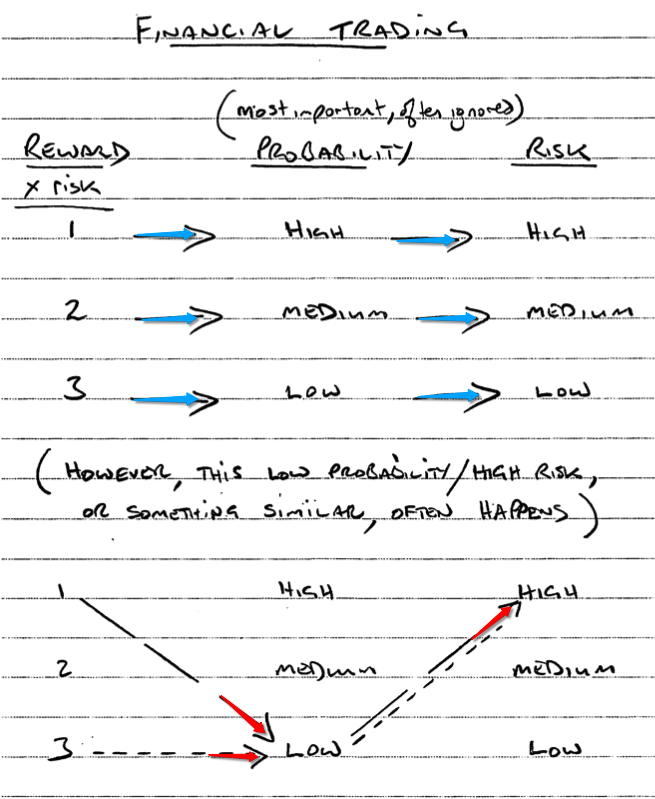 FINANCIAL TRADING
(most important, often ignored)
REWARD PROBABILITY RISK
x risk
1 HIGH HIGH
2 MEDIUM MEDIUM
3 LOW LOW
(HOWEVER, THIS LOW PROBABILITY/HIGH RISK,
OR SOMETHING SIMILAR, OFTEN HAPPENS)
1 HIGH HIGH
2 MEDIUM MEDIUM
3 LOW LOW